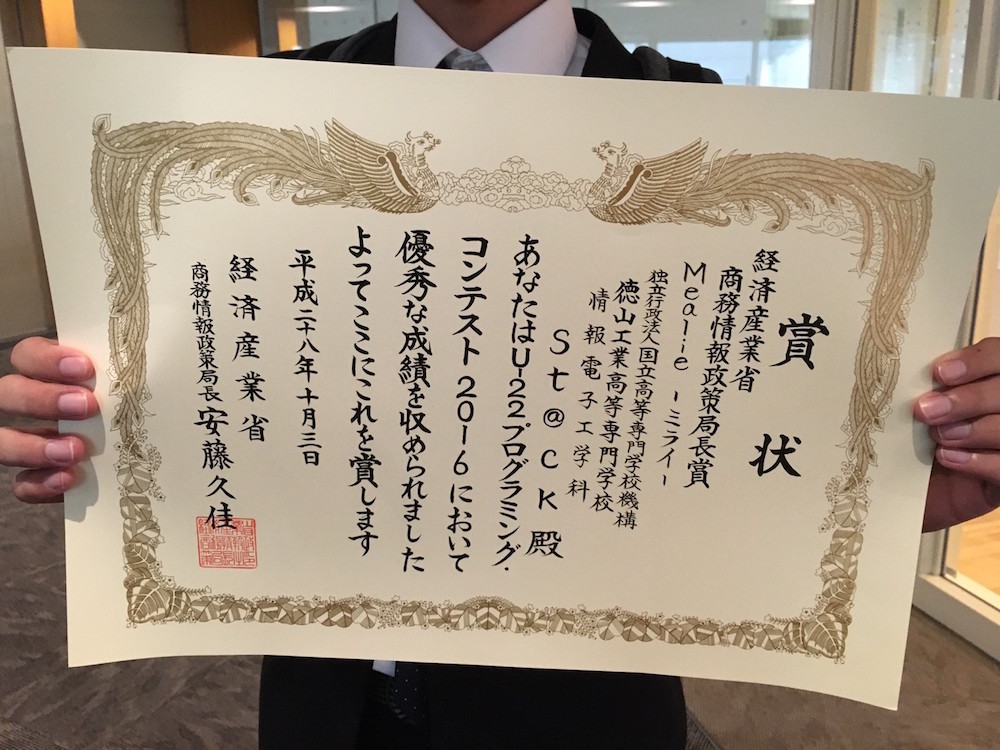 賞状
経済産業省
商務情報政策局長賞
Mealie -ミライ-
独立行政法人国立高等専門学校機構
徳山工業高等専門学校
情報電子工学科
St@cK殿
あなたはU-22プログラミング・
コンテスト2016において
優秀な成績を収められました
よってここにこれを賞します
平成二十八年十月三日
経済産業省
商務情報政策局長 安藤久佳